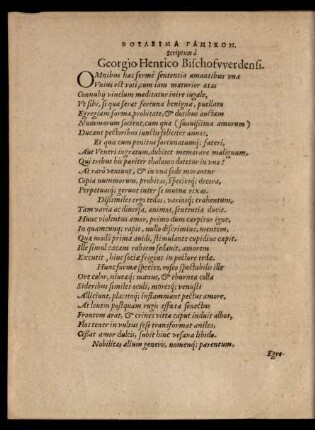 ΒΟΥΛΕΥΜΑ ΓΑΜΙΚΟΝ.
Scriptum à
Georgio Henrico Bischofvverdensi.
OMnibus hæc fermè sententia amantibus vna
Vnius est voti, cum iam maturior ætas
Connubij vinclum meditatur inire iugale,
Vt sibi, si qua serat fortuna benigna, puellam
Egregiam forma, probitate, & dotibus auctam
Nummorum societ, cum qua (suauissima amorum)
Ducant pectoribus iunctis feliciter annos,
Et quis eum penitus fortunatumq; fateri,
Aut Veneri ingratum, dubitet memorare malignum,
Qui tribus his pariter thalamo dotetur in vno?
At rarò veniunt, & in vna sede morantur
Copia nummorum, probitas, speciesq; decora,
Perpetuasq; gerunt inter se mutua rixas.
Dissimiles ergo tædas, variosq; trahentum,
Tam varia ac diuersa, animos, sententia ducit.
Hunc violentus amor, primo dum carpitur igne,
In quamcunq; rapit, nullo discrimine, mentem,
Quæ modò prima auidi, stimulante cupidine capit.
Ille simul cæcam rabiem sedauit, amorem
Excutit, hinc sociæ frigent in pectore tædæ.
Hunc formæ species, roseo spectabilis ille
Ore color, niueæq; manus, & eburnea colla
Sideribus similes oculi, motusq; venusti
Alliciunt, placitoq; inflammant pectus amore.
At leuem postquam rugis effœta senectus
Frontem arat, & crines vitta caput induit albos,
Flos tener in vultus sese transformat aniles,
Cessat amor dulcis, subit hinc vesana libido.
Nobilitas alium generis, nomenq; parentum.
Egre-